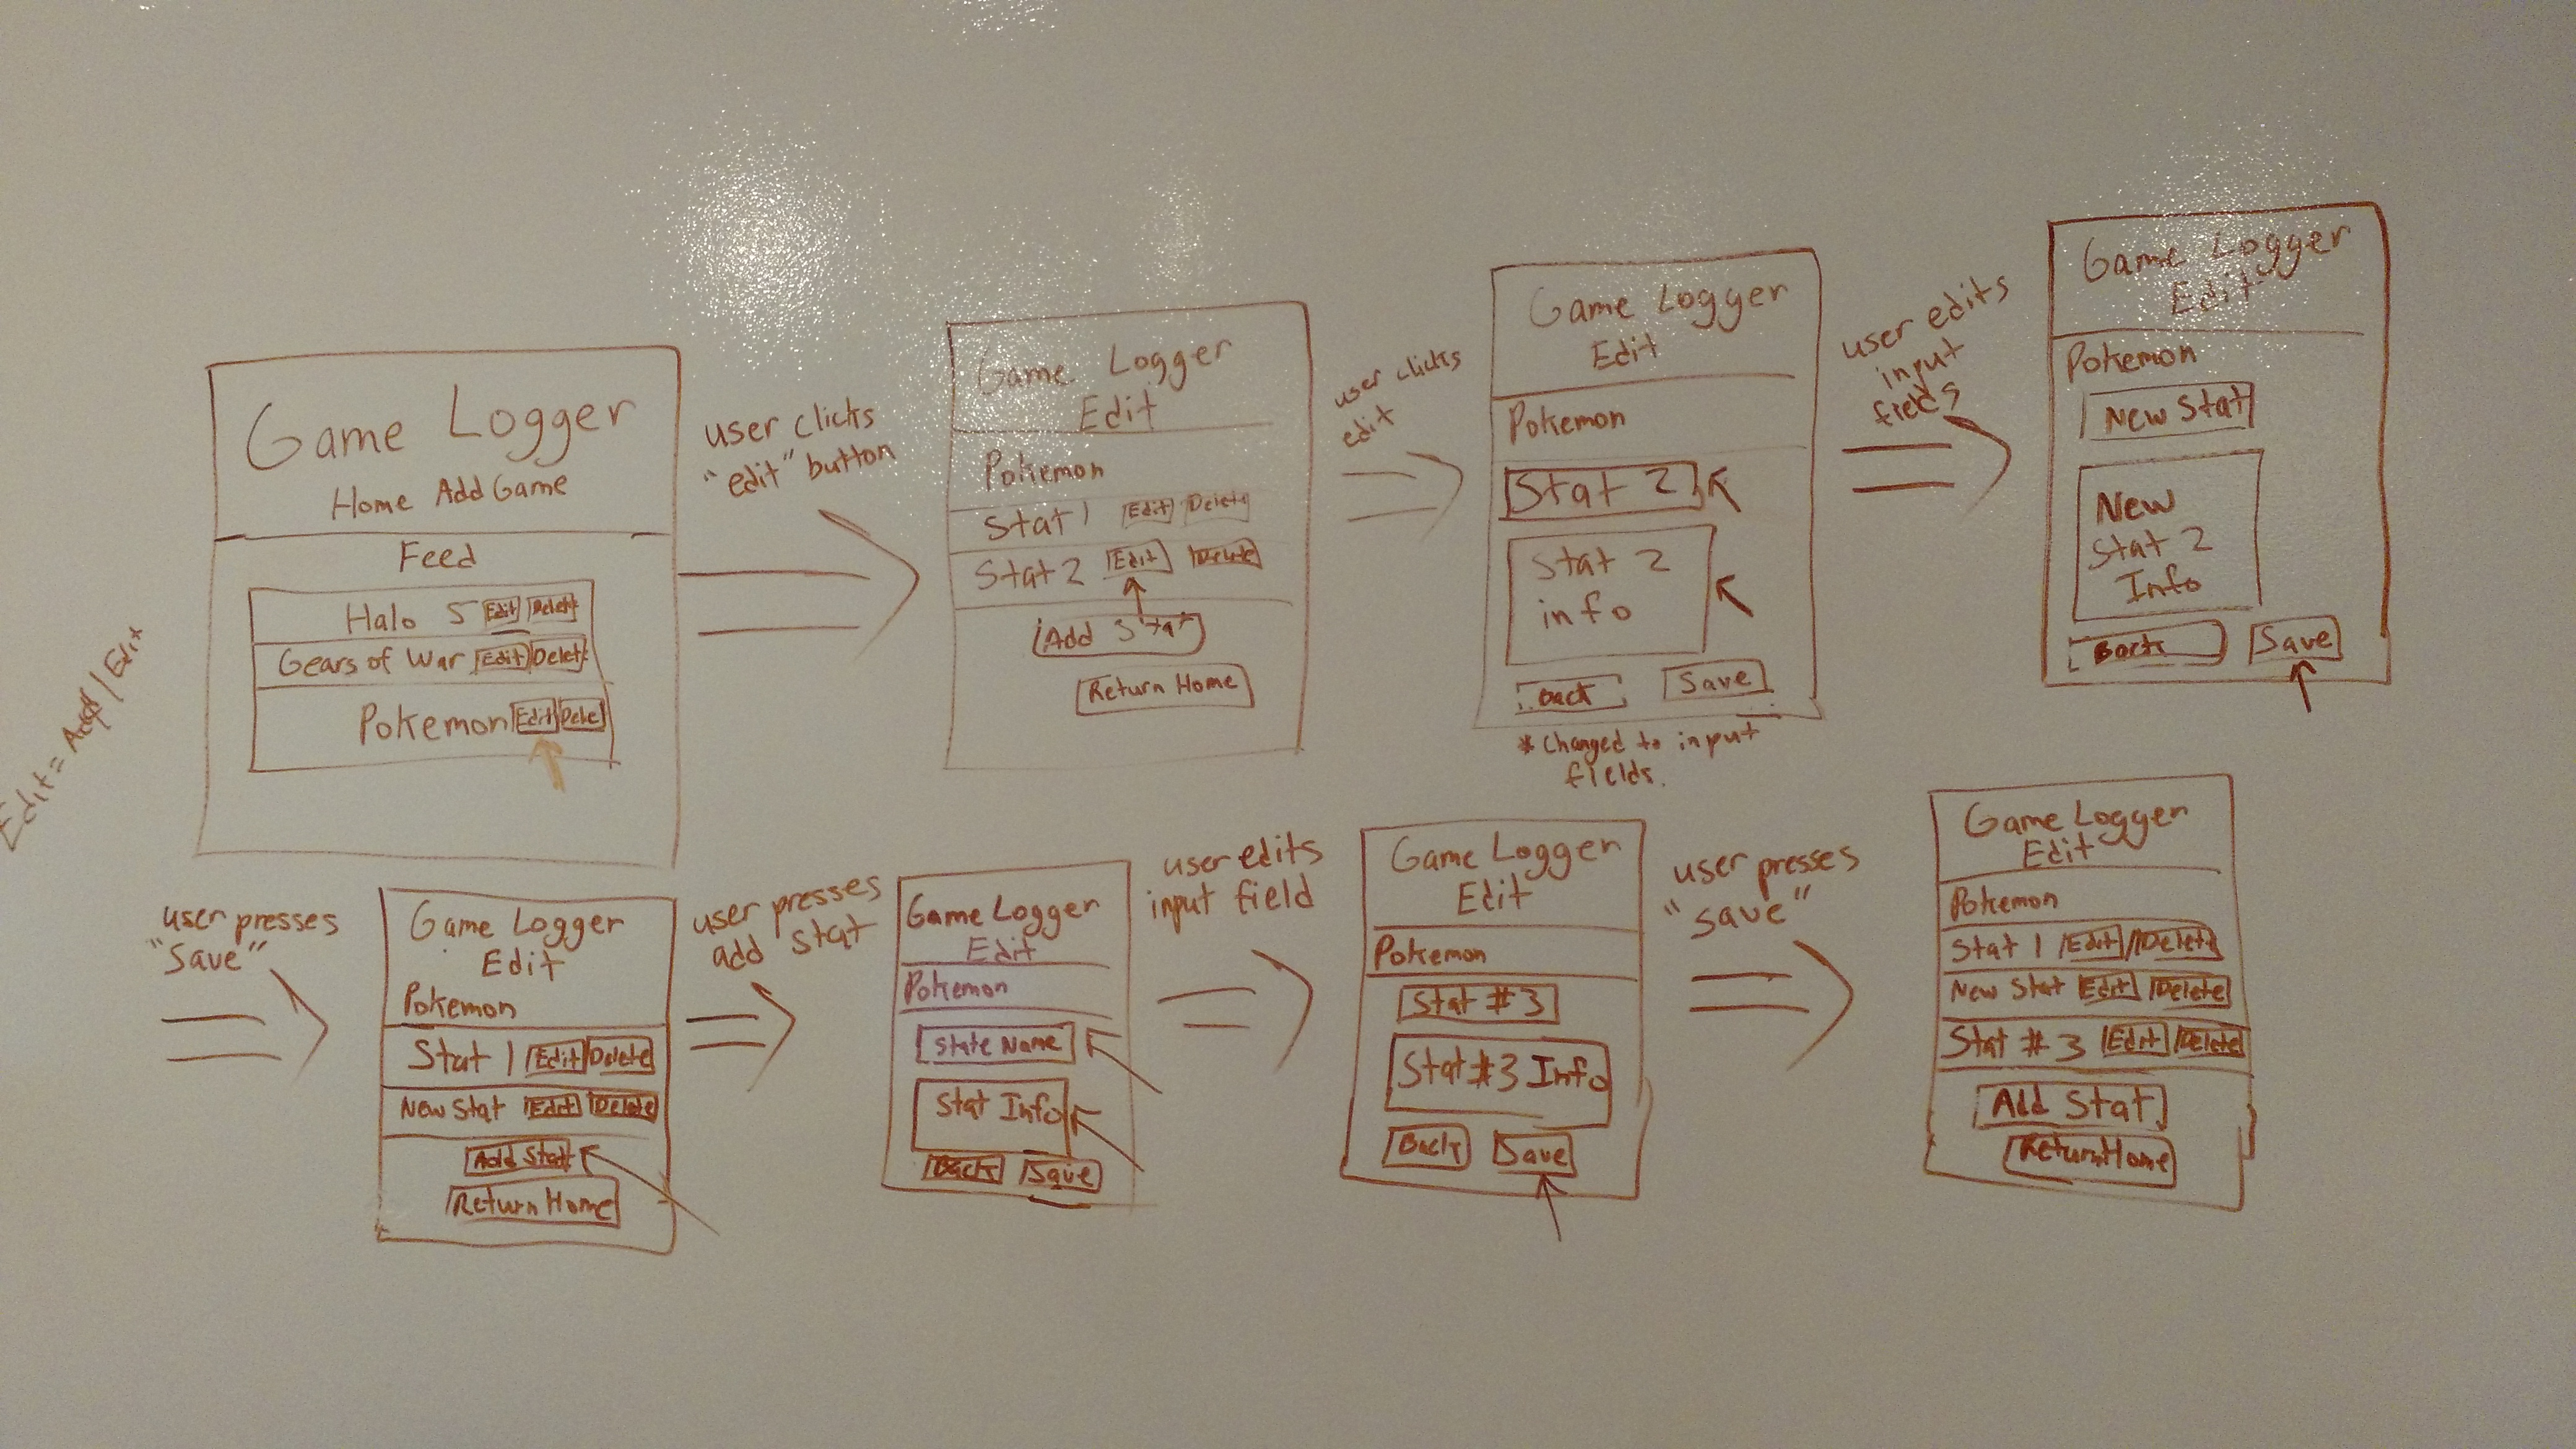 Game Logger
Home Add Game
Feed
Halo 5 Edit Delete
Gears of War Edit Delete
Pokemon Edit Delete
user clicks
"edit" button
Game Logger
Edit
Pokemon
Stat 1 Edit Delete
Stat 2 Edit Delete
Add Stat
Return Home
user clicks
edit
Game Logger
Edit
Pokemon
Stat 2
Stat 2
info
Back Save
* Changed to input
fields.
user edits
input
fields
Game Logger
Edit
Pokemon
New Stat
New
Stat 2
Info
Back Save
Edit =
user presses
"Save"
Game Logger
Edit
Pokemon
Stat 1 Edit Delete
New Stat Edit Delete
Add Stat
Return Home
user presses
add stat
Game Logger
Edit
Pokemon
State Name
Stat Info
Back Save
user edits
input field
Game Logger
Edit
Pokemon
Stat #3
Stat #3 Info
Back Save
user presses
"save"
Game Logger
Edit
Pokemon
Stat 1 Edit Delete
New Stat Edit Delete
Stat #3 Edit Delete
Add Stat
Return Home